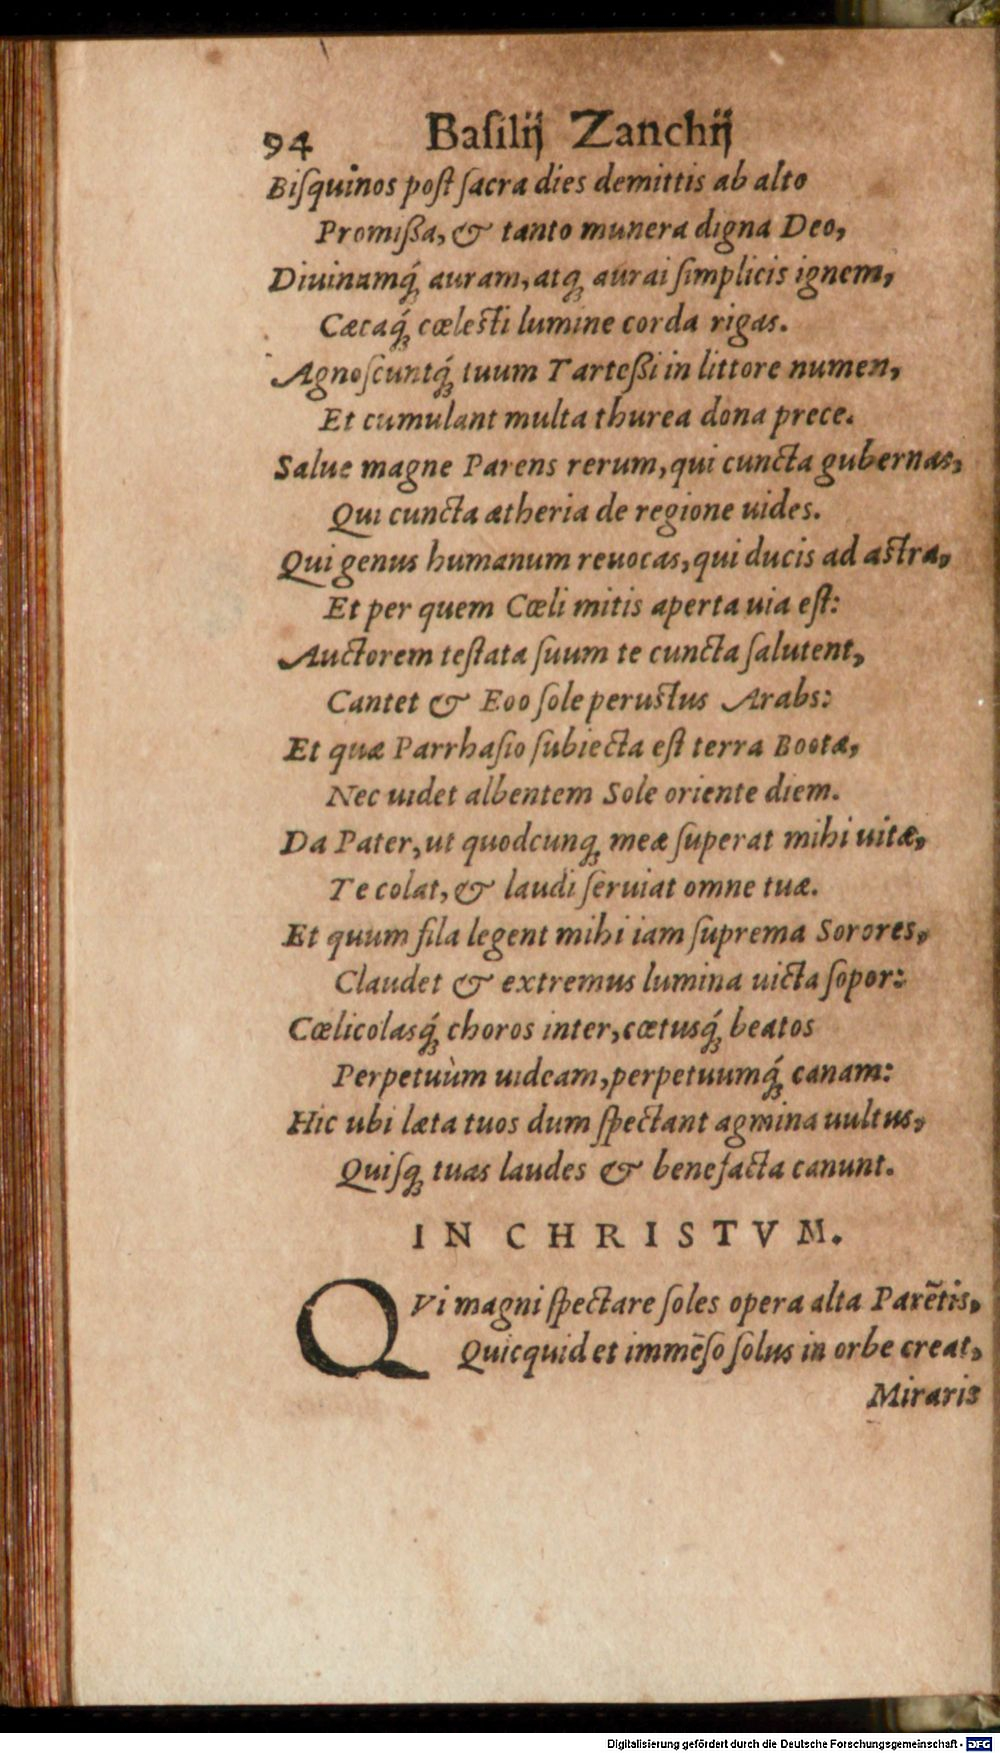 94 Baſilij Zanchij
Biſquinos poſt ſacra dies demittis ab alto
Promiſſa, & tanto munera digna Deo,
Diuinamq́; auram, atq; aurai ſimplicis ignem,
Cæcaq́; cœleſti lumine corda rigas.
Agnoſcuntq́; tuum Tarteſſi in littore numen,
Et cumulant multa thurea dona prece.
Salue magne Parens rerum, qui cuncta gubernas,
Qui cuncta ætheria de regione uides.
Qui genus humanum reuocas, qui ducis ad aſtra,
Et per quem Cœli mitis aperta uia eſt:
Auctorem teſtata ſuum te cuncta ſalutent,
Cantet & Eoo ſole peruſtus Arabs:
Et quæ Parrhaſio ſubiecta eſt terra Bootæ,
Nec uidet albentem Sole oriente diem.
Da Pater, ut quodcunq; meæ ſuperat mihi uitæ,
Te colat, & laudi ſeruiat omne tuæ.
Et quum fila legent mihi iam ſuprema Sorores,
Claudet & extremus lumina uicta ſopor:
Cœlicolasq́; choros inter, cœtusq́; beatos
Perpetuùm uideam, perpetuumq́; canam:
Hic ubi læta tuos dum ſpectant agmina uultus,
Quiſq; tuas laudes & benefacta canunt.
IN CHRISTVM.
QVi magni ſpectare ſoles opera alta Parẽtis,
Quicquid et immẽſo ſolus in orbe creat,
Miraris
Digitalisierung gefördert durch die Deutsche Forschungsgemeinschaft - DFG